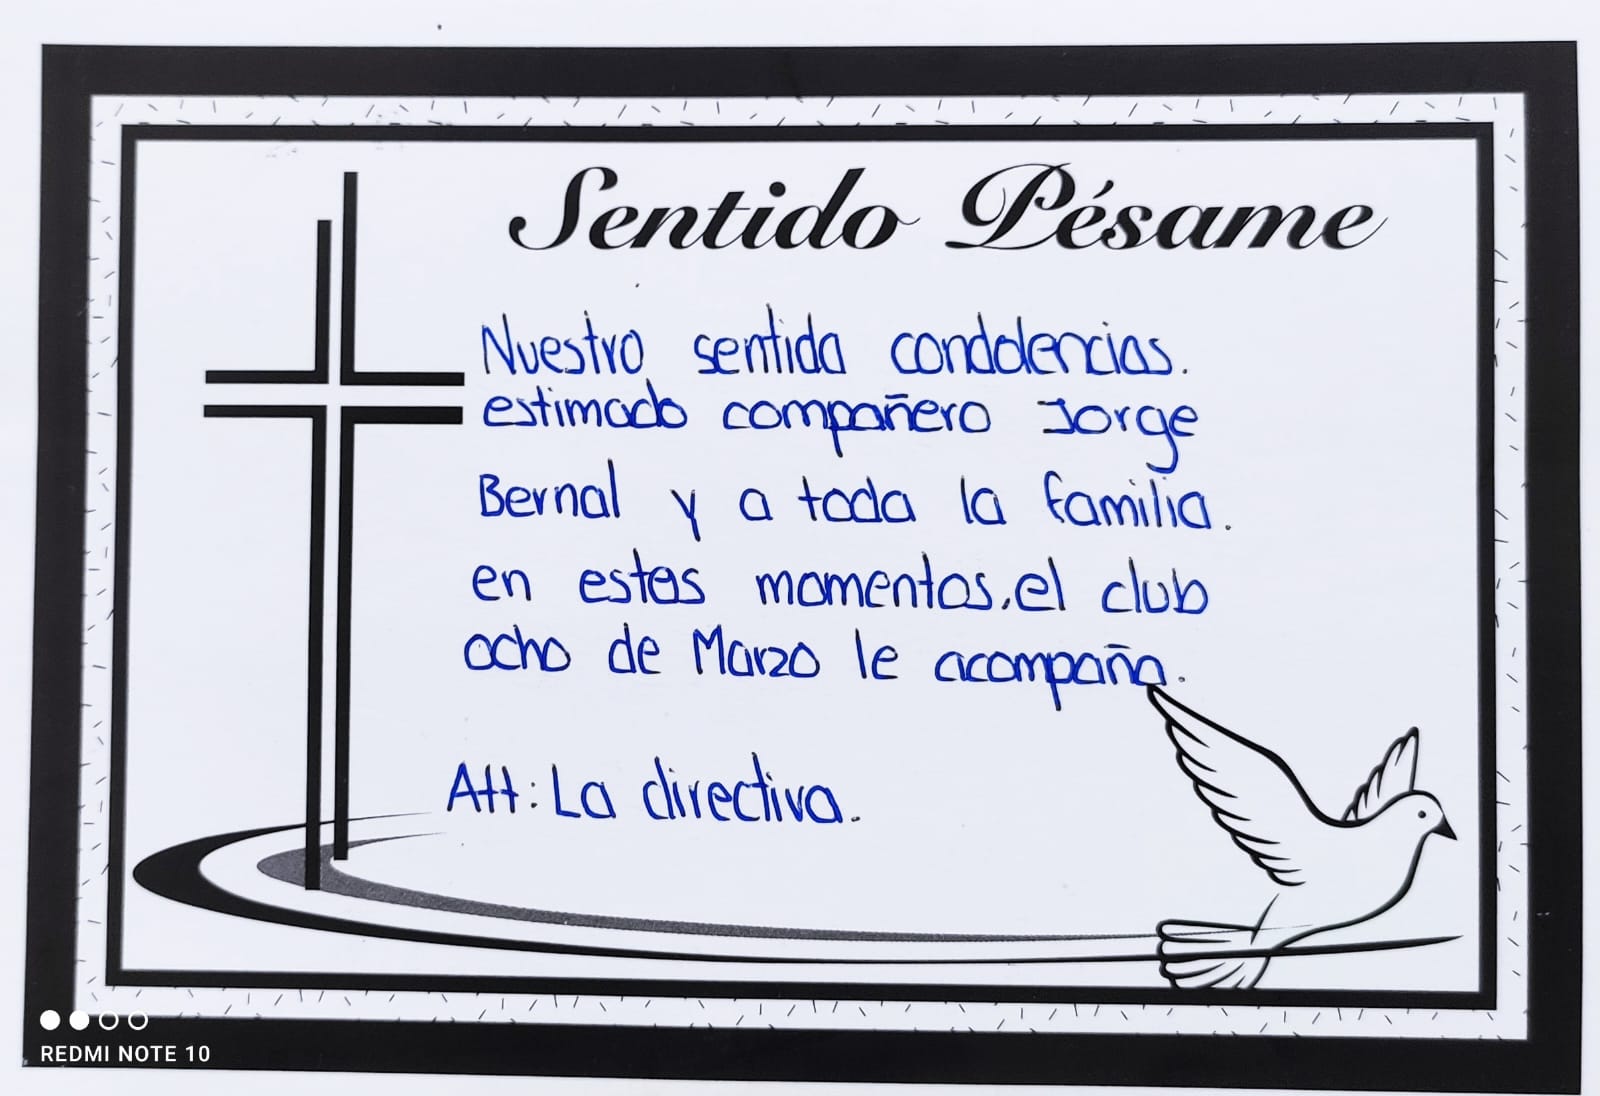 Sentido Pésame
Nuestro sentida condolencias.
estimado compañero Jorge
Bernal y a toda la familia.
en estos momentos, el club
ocho de Marzo le acompaña.
Att: La directiva.
REDMI NOTE 10